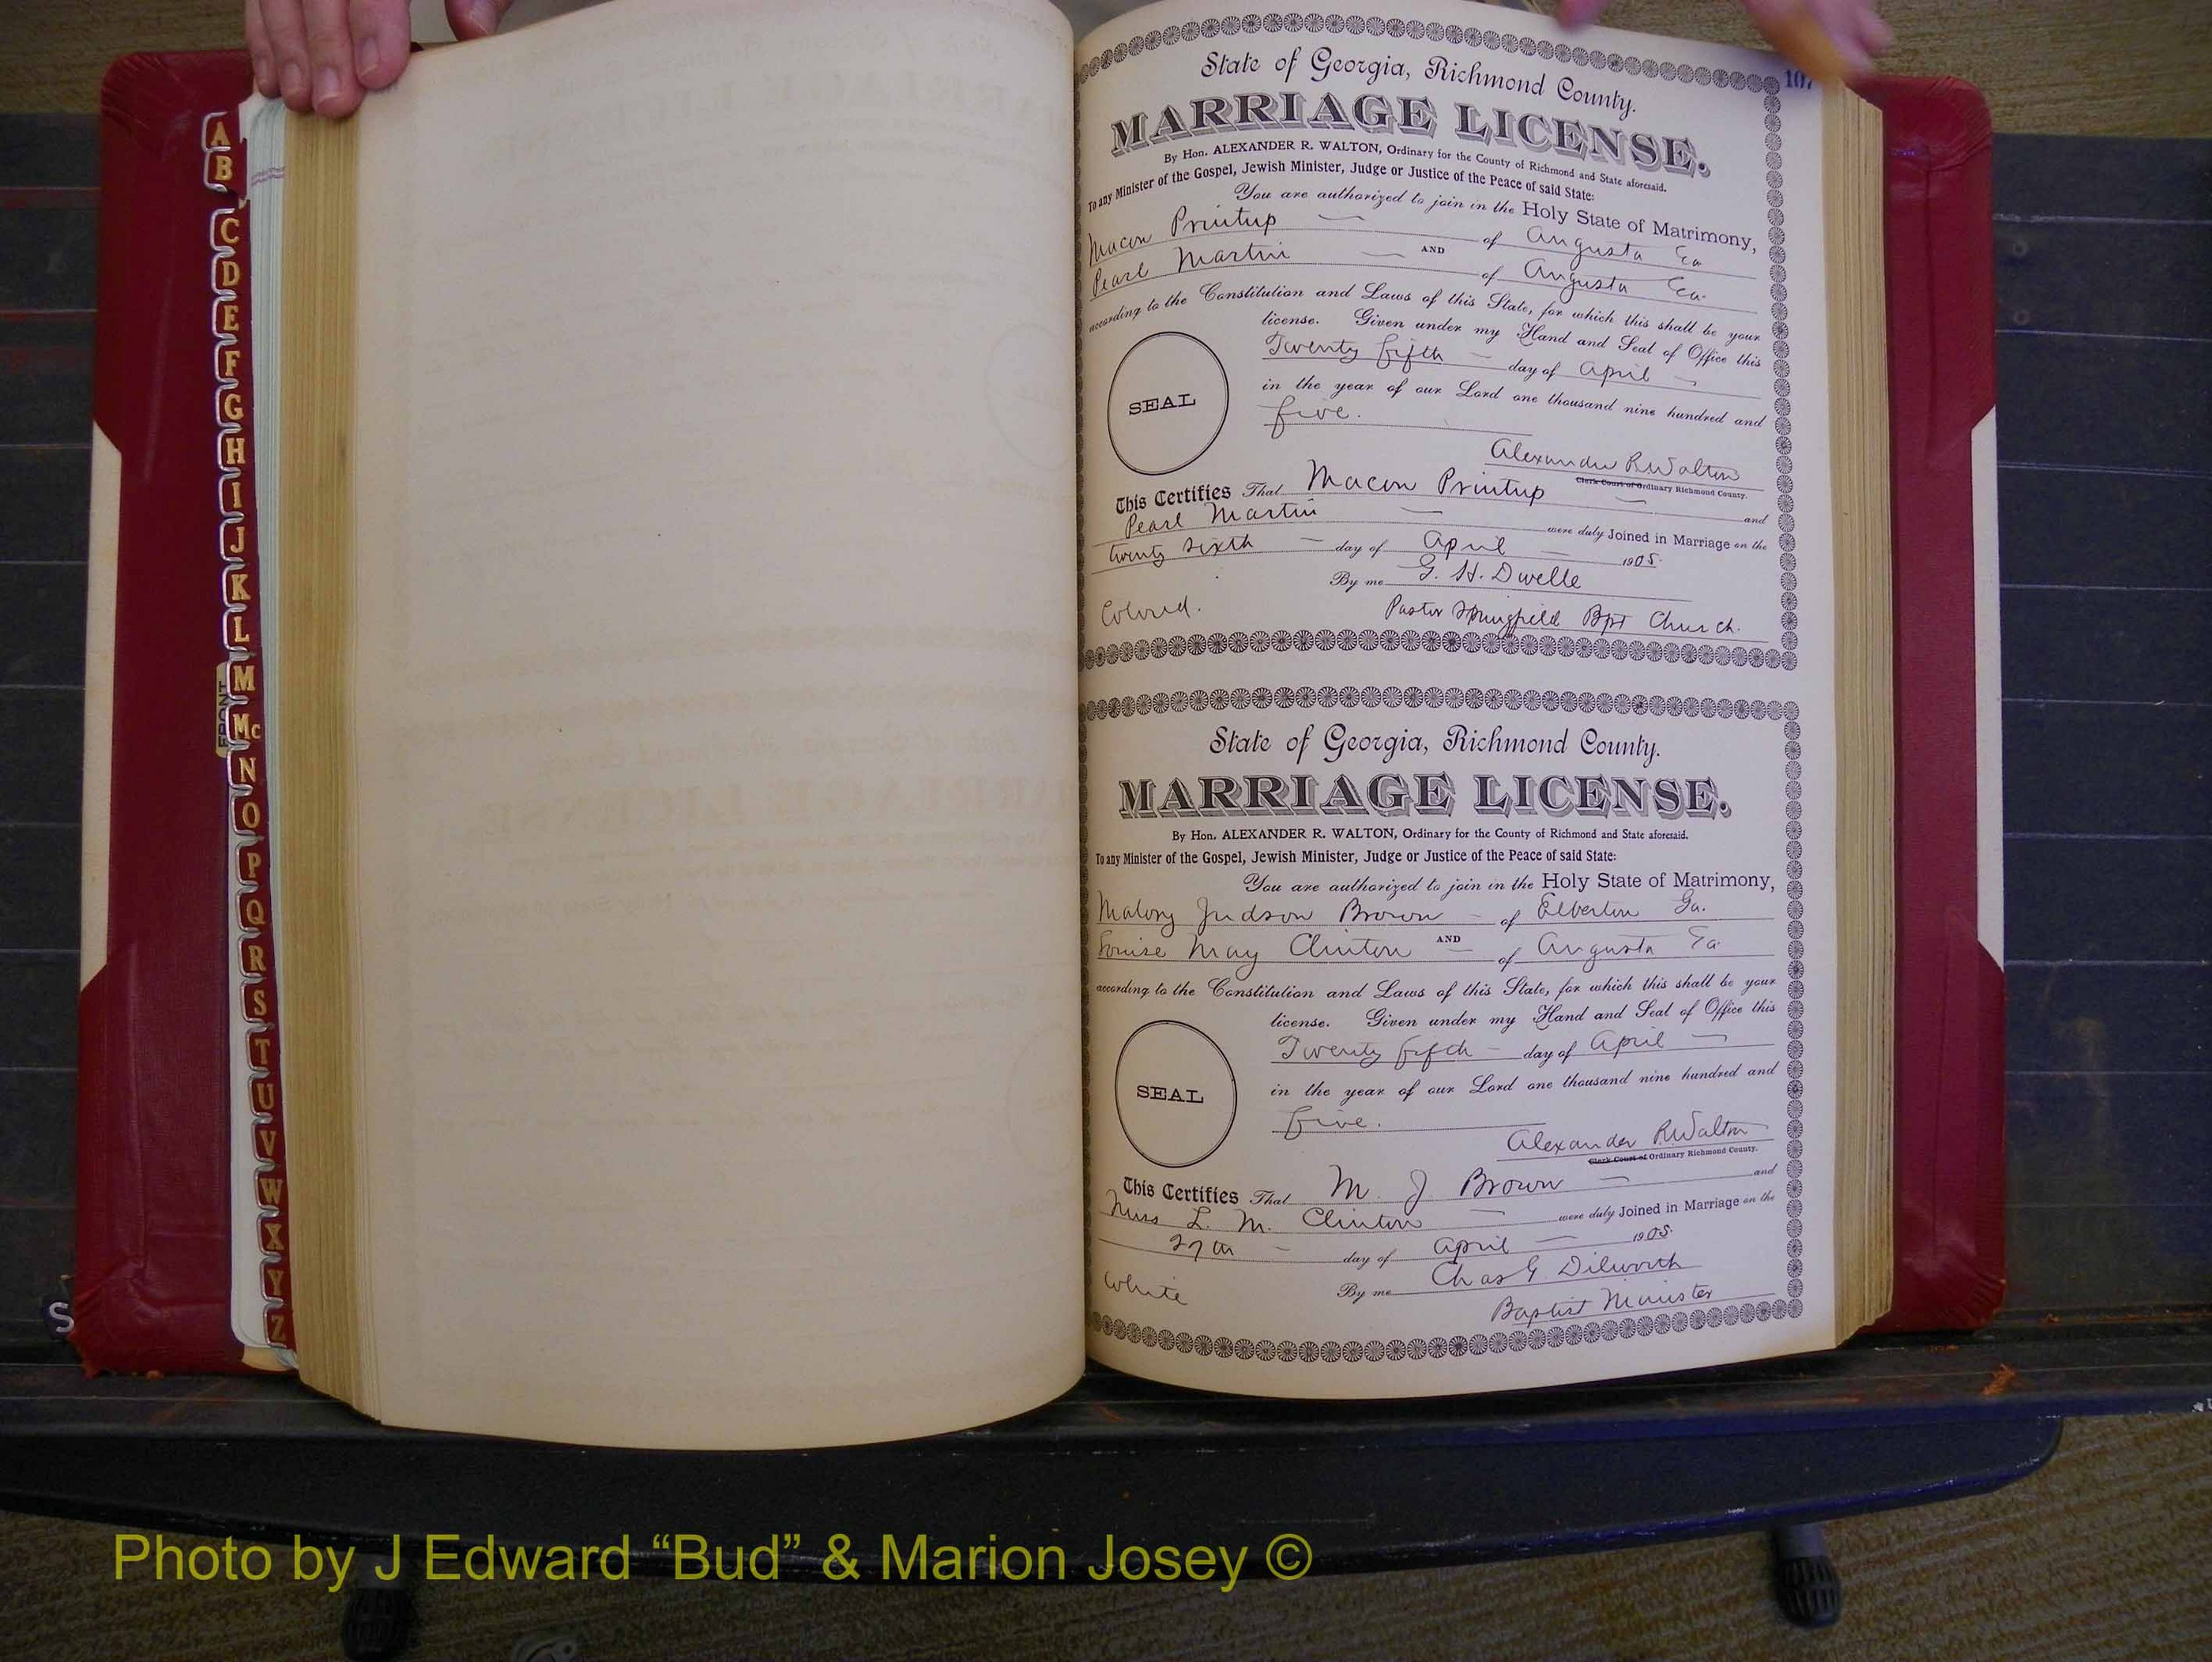 A
B
C
D
E
F
G
H
I
J
K
L
M
FRONT
Mc
N
O
P
Q
R
S
T
U
V
W
X
Y
Z
S
107
State of Georgia, Richmond County.
MARRIAGE LICENSE.
By Hon. ALEXANDER R. WALTON, Ordinary for the County of Richmond and State aforesaid.
To any Minister of the Gospel, Jewish Minister, Judge or Justice of the Peace of said State:
You are authorized to join in the Holy State of Matrimony,
Macon Printup of Augusta Ga
AND
Pearl Martin of Augusta Ga.
according to the Constitution and Laws of this State, for which this shall be your
license. Given under my Hand and Seal of Office this
Twenty fifth day of April
in the year of our Lord one thousand nine hundred and
five.
SEAL
Alexander R Walton
Clerk Court of Ordinary Richmond County.
This Certifies That Macon Printup and
Pearl Martin were duly Joined in Marriage on the
twenty sixth day of April 1905.
By me G. H. Dwelle
Colored. Pastor Springfield Bpt Church.
State of Georgia, Richmond County.
MARRIAGE LICENSE.
By Hon. ALEXANDER R. WALTON, Ordinary for the County of Richmond and State aforesaid.
To any Minister of the Gospel, Jewish Minister, Judge or Justice of the Peace of said State:
You are authorized to join in the Holy State of Matrimony,
Malory Judson Brown of Elberton Ga.
AND
Louise May Clinton of Augusta Ga.
according to the Constitution and Laws of this State, for which this shall be your
license. Given under my Hand and Seal of Office this
Twenty fifth day of April
in the year of our Lord one thousand nine hundred and
five.
SEAL
Alexander R Walton
Clerk Court of Ordinary Richmond County.
This Certifies That M. J Brown and
Miss L. M. Clinton were duly Joined in Marriage on the
27th day of April 1905.
By me Chas G. Dilworth
White Baptist Minister
Photo by J Edward “Bud” & Marion Josey ©